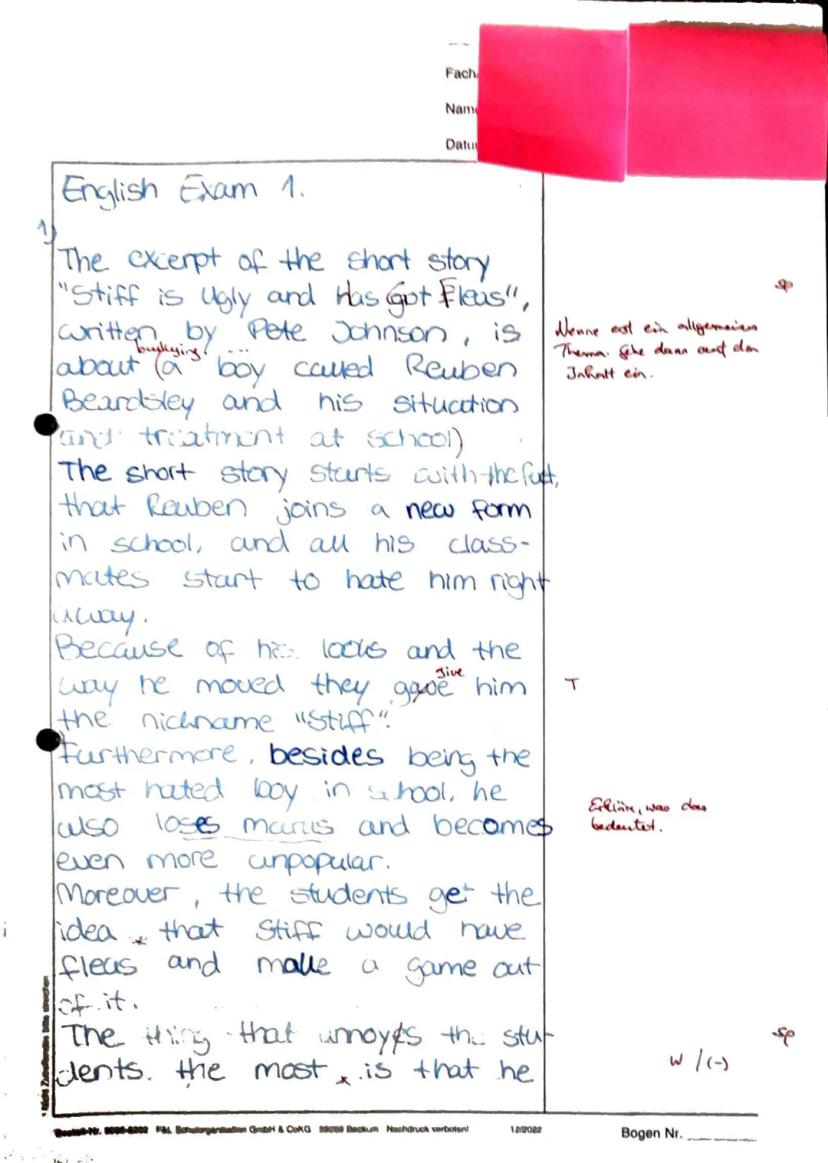 Fach
Name
Datu
English Exam 1.
1)
The excerpt of the short story
sp
"Stiff is Ugly and Has Got Fleas",
written by Pete Johnson, is
Nenne erst ein allgemeines
bullying
Thema. Gehe dann auf den
about (a boy called Reuben
Inhalt ein.
Beardsley and his situation
and treatment at school)
The short story starts with the fact,
that Reuben joins a new form
in school, and all his class-
mates start to hate him right
away.
Because of his looks and the
give
way he moved they gave him
T
the nickname "Stiff".
Furthermore, besides being the
most hated boy in school, he
Erkläre, was das
also loses marks and becomes
bedeutet.
even more unpopular.
Moreover, the students get the
idea that Stiff would have
fleas and make a game out
of it.
The thing that annoys the stu-
sp
dents the most is that he
W / (-)
* Nicht Zutreffendes bitte streichen
Bestell-Nr. F&L Schulorganisation GmbH & CoKG 59269 Beckum Nachdruck verboten! 12/2022
Bogen Nr.